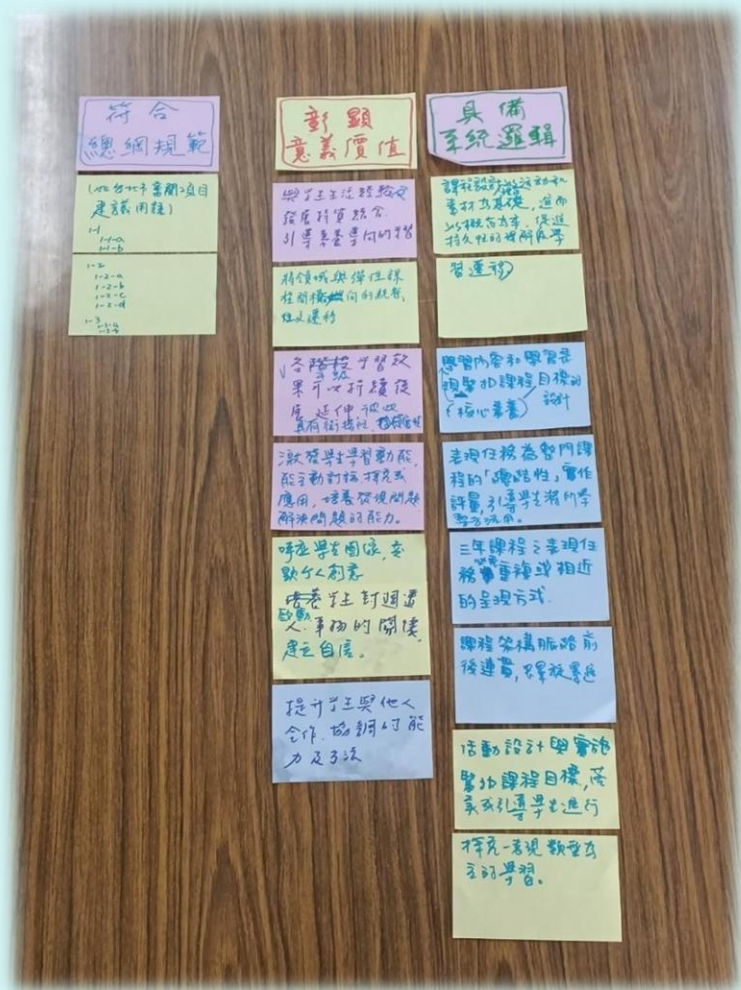 符合
總綱規範
(從台北市審閱項目
建議用種)
1-1
1-1-a
1-1-b
1-2
1-2-a
1-2-b
1-2-c
1-2-d
1-3
1-3-a
1-3-b
彰顯
意義價值
與學生生活經驗及
發展特質統合
引導素養導向的學習
將領域與彈性課
程間橫向的統整,
延伸遷移
各年級學習效
果可以持續發
展延伸彼此
具有銜接性
激發學生學習動能,
能主動討論、探究或
應用,培養發現問題
解決問題的能力。
呼應學生圖像,
個人創意
啟動學生對週遭
人、事物的關懷,
建立自信。
提升學生與他人
合作、協調的能
力及方法
具備
系統邏輯
課程設計以活動和
素材為基礎,進而
以概念為本,促進
持久性的理解及學
習遷移
學習內容和學習表
現緊扣課程目標的
(核心素養) 設計
表現任務為整門課
程的「總結性」實作
評量,引導學生將所學
整合活用。
三年課程之表現任
務重複或相近
的呈現方式.
課程架構脈絡前
後連貫,
活動設計與實施
緊扣課程目標,
或引導學生進行
探究-表現類型為
主的學習。